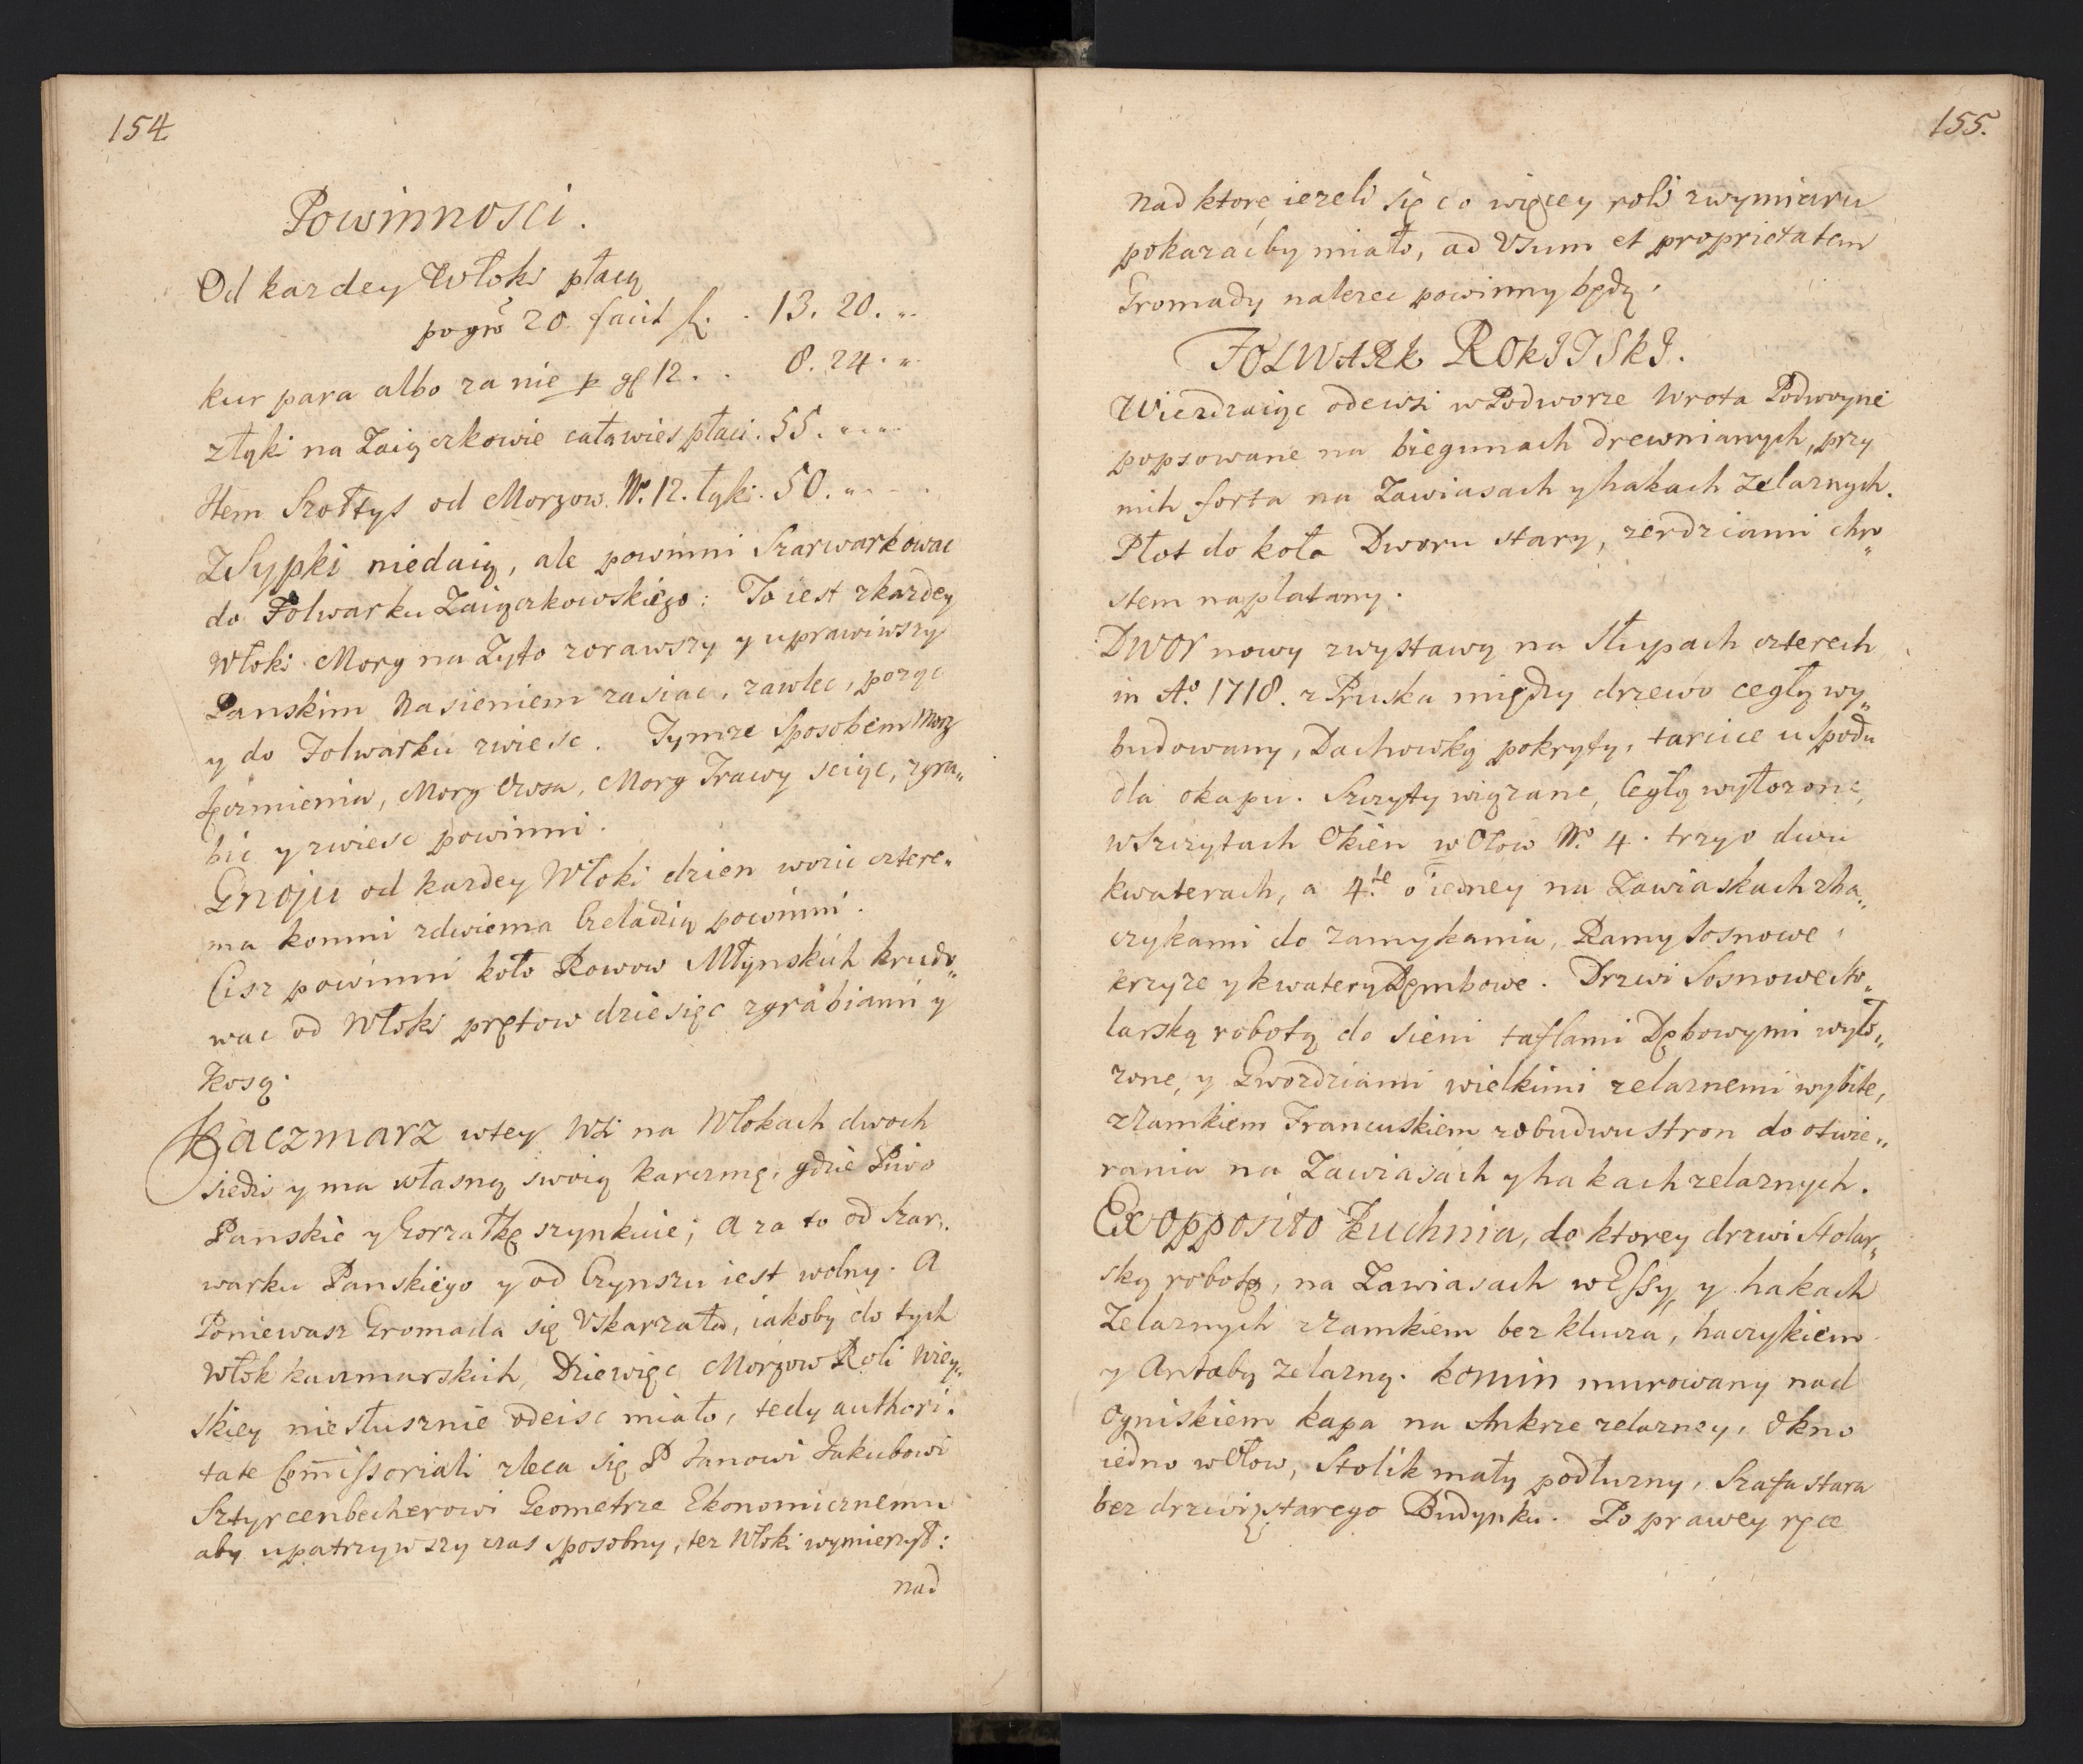 154
Powinnosci.
Od kazdey Włoki płacą
po gro 20. facit f. . 13. 20. "
kur para albo za nie p gl 12. . 8. 24. "
złąki na Zaiączkowie cała wies płaci. 55. " "
Item Szołtys od Morgow. No. 12. łąki. 50. " "
ZSypki niedaią, ale powinni Szarwarkowac
do Folwarku Zaiączkowskiego: To iest zkazdey
Włoki Morg na Zyto zorawszy y uprawiwszy
Panskim Nasieniem zasiac, zawlec, poząc
y do Folwarku zwiesc. Tymze Sposobem Morg
Jęczmienia, Morg Owsa, Morg Trawy sciąc, zgra„
bic y zwiesc powinni.
Gnoju od kazdey Włoki dzien wozic cztere„
ma konmi zdwiema Czeladzią powinni.
Cisz powinni koło Rowow Młynskich krudo„
wac od Włoki prętow dziesięc zgrabiami y
Kosą.
Kaczmarz wtey Wsi na Włokach dwoch
siedzi y ma własną swoią karczmę, gdzie Piwo
Panskie y Gorzałkę szynkuie; a za to od Szar„
warku Panskiego y od Czynszu iest wolny. A
Poniewasz Gromada się Uskarzała, iakoby do tych
Włok kaczmarskich, Dziewięc Morgow Roli Wiey„
skiey niesłusznie odeisc miało, tedy authori„
tate Commissoriali zleca się P Janowi Jakubowi
Sztyrcenbecherowi Geometrze Ekonomicznemu
aby upatrzywszy czas sposobny, tez Włoki wymierzył:
nad
155.
nad ktore iezeli się co więcey roli zwymiaru
pokazacby miało, ad Usum et proprietatem
Gromady nalezec powinny będą.
FOLWARK ROKIJSKI.
Wiezdzaiąc odewsi w Podworze Wrota Podwoyne
popsowane na biegunach drewnianych, przy
nich forta na Zawiasach y hakach Zelaznych.
Płot do koła Dworu stary, zerdziami chro„
stem naplatany.
DWOR nowy zwystawą na Słupach czterech
in Ao. 1718. z Pruska między drzewo cegłą wy„
budowany, Dachowką pokryty, tarcice u Spodu
dla okapu. Szczyty wiązane, Cegłą wyłozone,
w Szczytach Okien w Ołow No. 4. trzy o dwu
kwaterach, a 4.te o iedney na Zawiaskach zha„
czykami do zamykania, Ramy Sosnowe,
krzyze y kwatery Dembowe. Drzwi Sosnowe sto„
larską robotą do sieni taflami Dębowymi wyło„
zone, y Gwozdziami wielkimi zelaznemi wybite,
zZamkiem Francuskiem zobudwu stron do otwie„
rania na Zawiasach y hakach zelaznych.
Ex opposito Kuchnia, do ktorey drzwi Stolar„
ską robotą, na Zawiasach w Essy, y hakach
Zelaznych zZamkiem bez klucza, haczykiem
y Antabą zelazną. komin murowany nad
Ogniskiem kapa na Ankrze zelazney, Okno
iedno w Ołow, Stolik mały podłuzny, Szafa stara
bez drzwi zstarego Budynku. Po prawey ręce